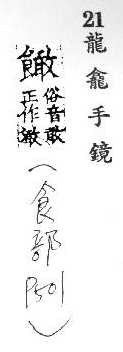 21龍龕手鏡
俗音敢
正作
（食部P501）